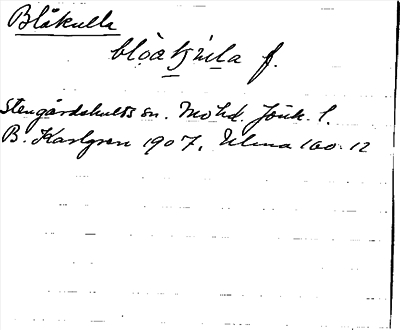 Blåkulla
f.
Stengårdshults sn. Mo hd. Jönk. l.
B. Karlgren 1907. Ulma 100:12